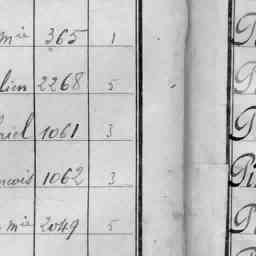 mie 365 1
lien 2268 5
riel 1061 3
ncois 1062 3
mie 2049 5
Pi